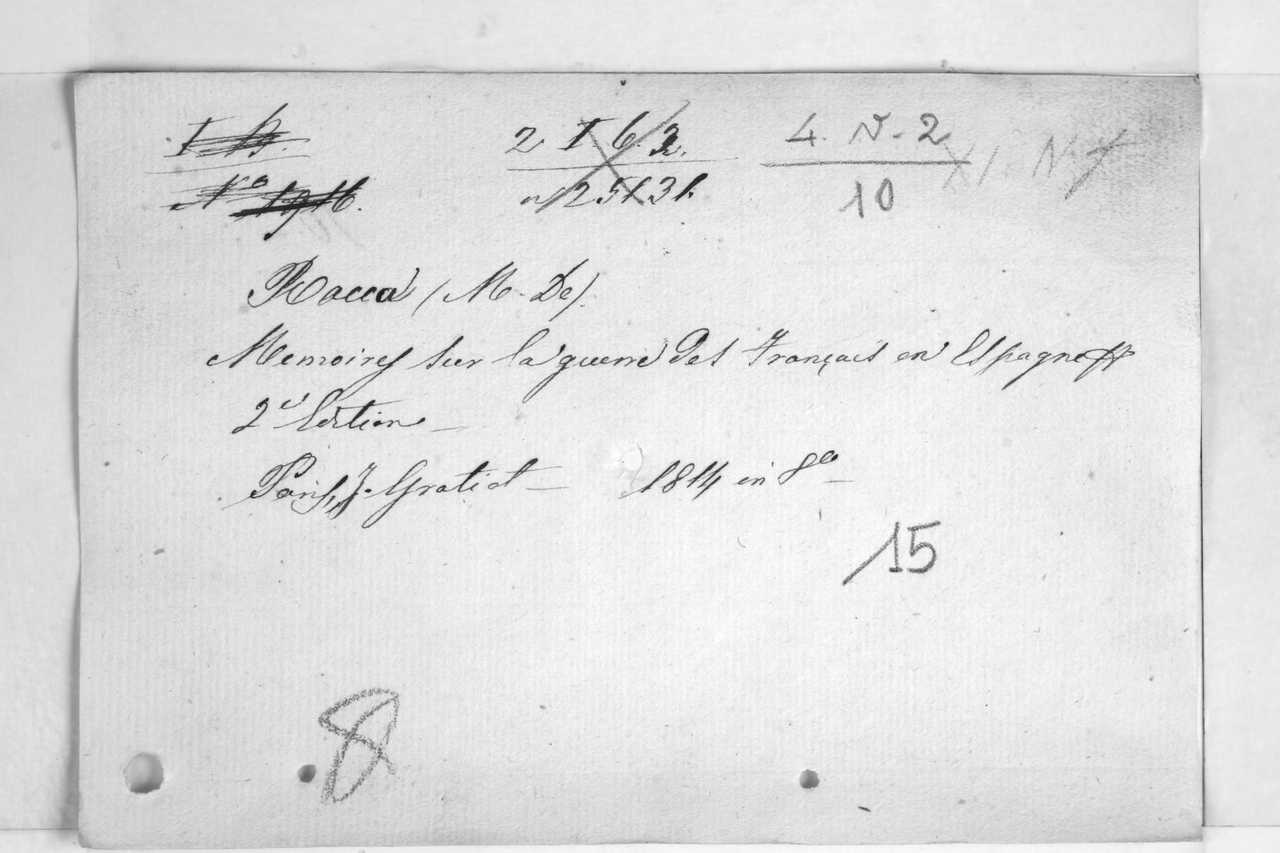 2 I 6. 3.
4. N - 2
10
Rocca (M. De)
Memoires sur la guerre des Français en Espagne
2e Edition
Paris, J. Gratiot — 1814 in 8o
15
8